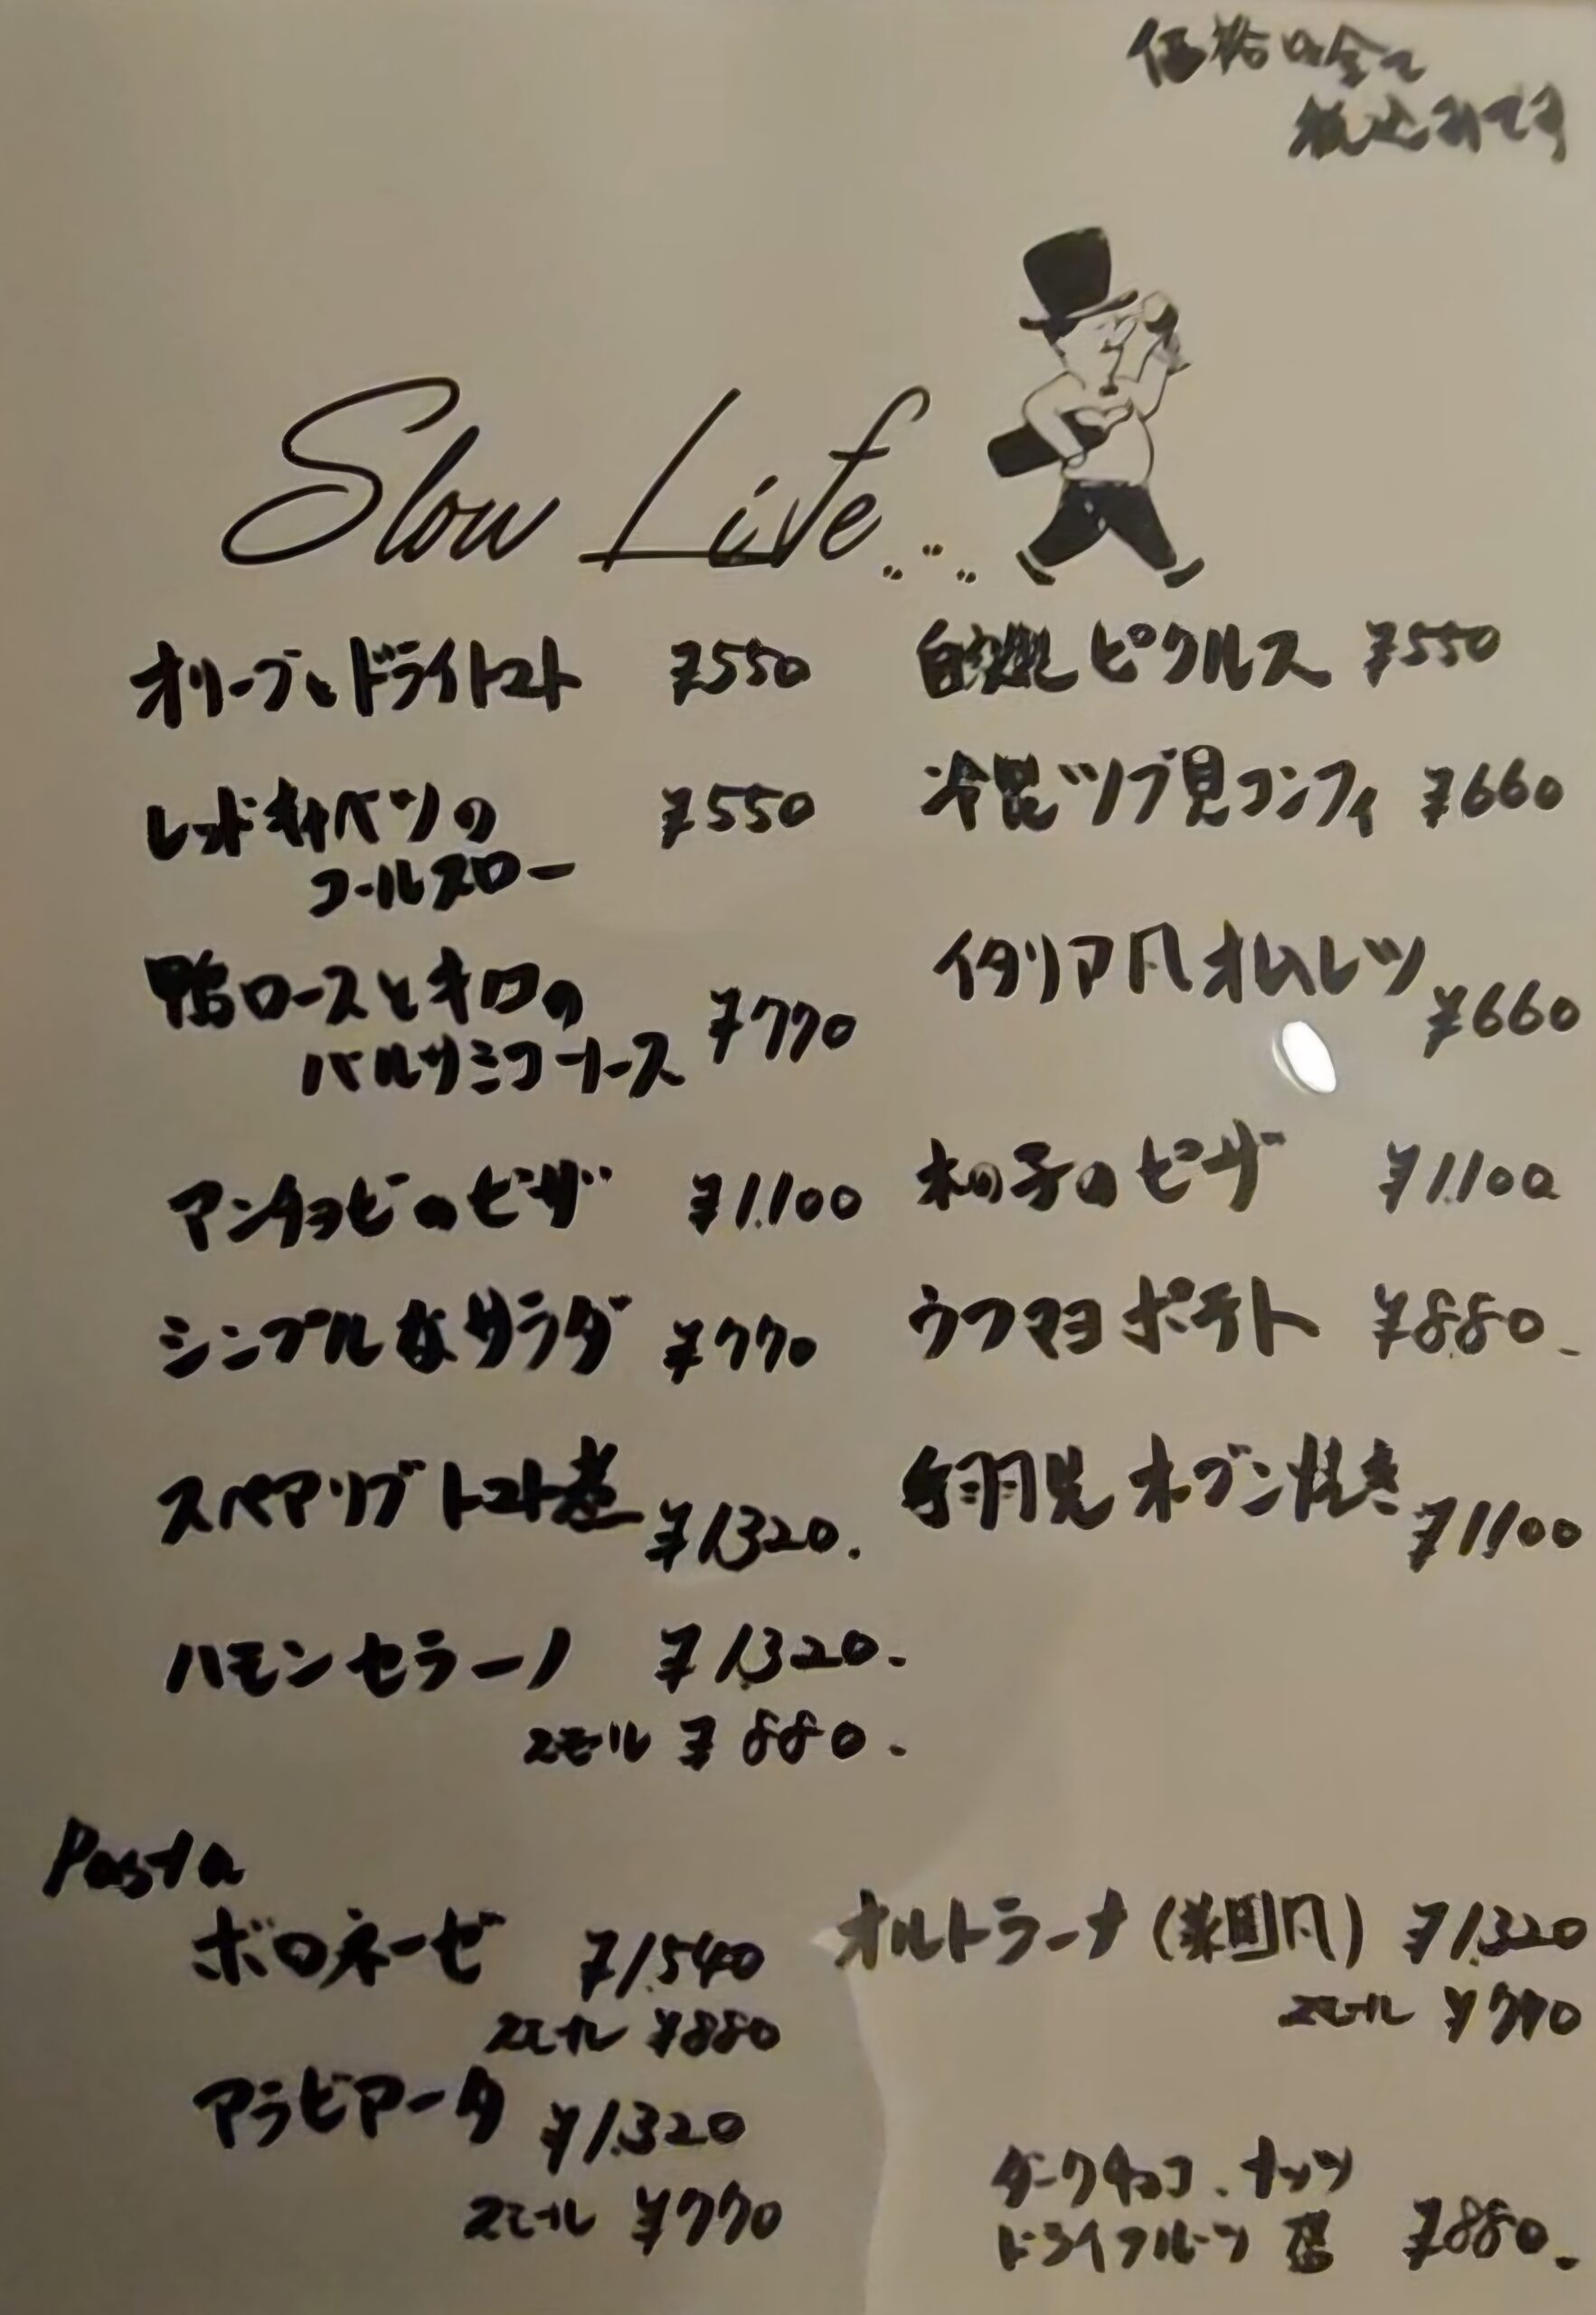 価格は全て
税込みです
Slow Life
オリーブとドライトマト ¥550
自家製ピクルス ¥550
レッドキャベツの ¥550
コールスロー
冷製ツブ貝コンフィ ¥660
鴨ロースとキウイの
バルサミコソース ¥770
イタリア風オムレツ
¥660
アンチョビのピザ ¥1,100
木の子のピザ ¥1,100
シンプルなサラダ ¥770
ウフマヨポテト ¥880.
スペアリブトマト煮 ¥1,320.
オーブン焼き ¥1,100
ハモンセラーノ ¥1,320.
スモール ¥880.
Pasta
ボロネーゼ ¥1,540
スモール ¥880
オルトラーナ(菜園風) ¥1,320
スモール ¥770
アラビアータ ¥1,320
スモール ¥770
ダークチョコ、ナッツ
ドライフルーツ ¥880.